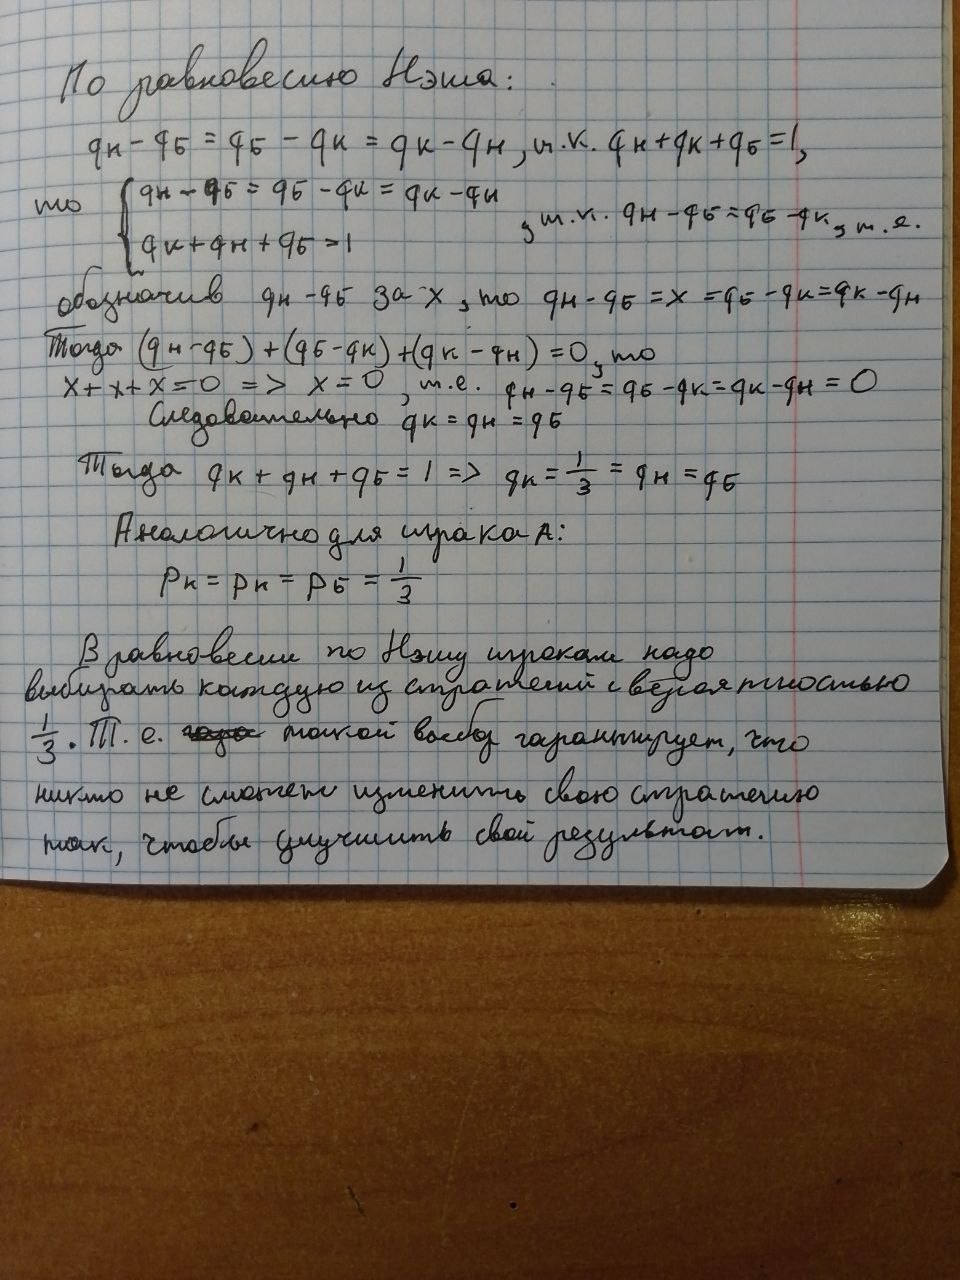 По равновесию Нэша:
qн - qБ = qБ - qк = qк - qн, т.к. qн + qк + qБ = 1,
то { qн - qБ = qБ - qк = qк - qн
qк + qн + qБ = 1
, т.к. qн - qБ = qБ - qк, т.е.
обозначив qн - qБ за x, то qн - qБ = x = qБ - qк = qк - qн
Тогда (qн - qБ) + (qБ - qк) + (qк - qн) = 0, то
x + x + x = 0 => x = 0, т.е. qн - qБ = qБ - qк = qк - qн = 0
Следовательно qк = qн = qБ
Тогда qк + qн + qБ = 1 => qк = 1/3 = qн = qБ
Аналогично для игрока А:
pк = pн = pБ = 1/3
В равновесии по Нэшу игрокам надо
выбирать каждую из стратегий с вероятностью
1/3. Т.е. такой выбор гарантирует, что
никто не сможет изменить свою стратегию
так, чтобы улучшить свой результат.